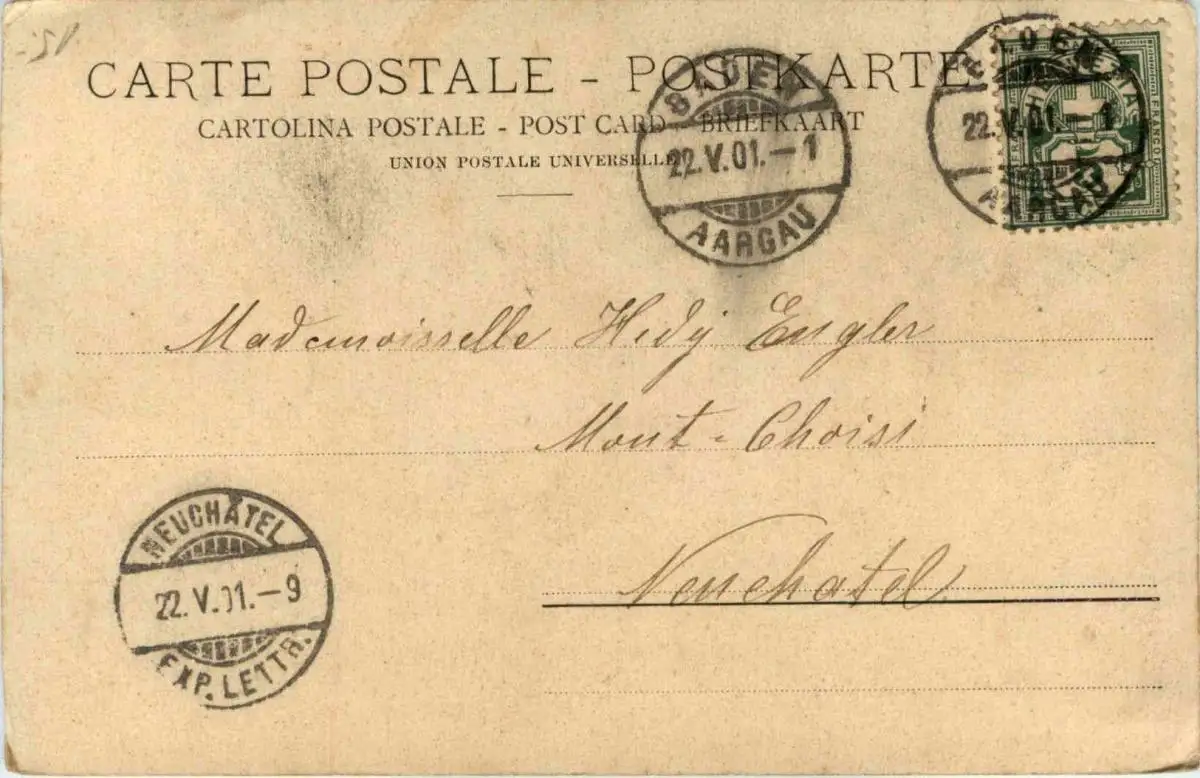 CARTE POSTALE - POSTKARTE
CARTOLINA POSTALE - POST CARD - BRIEFKAART
UNION POSTALE UNIVERSELLE
BADEN
22.V.01.-1
AARGAU
BADEN
22.V.01.-1
AARGAU
FRANCO
Mademoisselle Hedy Engler
Mont-Choisi
Neuchatel
NEUCHÂTEL
22.V.01.-9
EXP. LETTR.